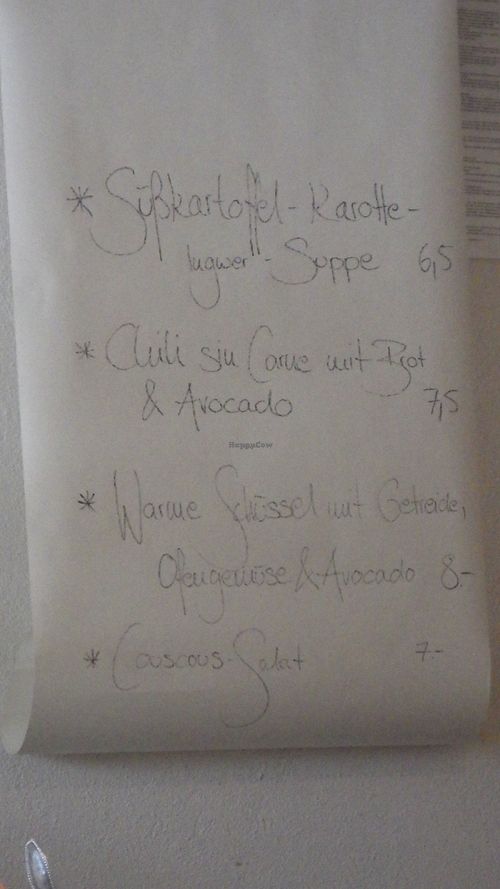 * Süßkartoffel-Karotte-
Ingwer-Suppe 6,5
* Chili sin Carne mit Brot
& Avocado 7,5
HappyCow
* Warme Schüssel mit Getreide,
Ofengemüse & Avocado 8.-
* Couscous-Salat 7.-